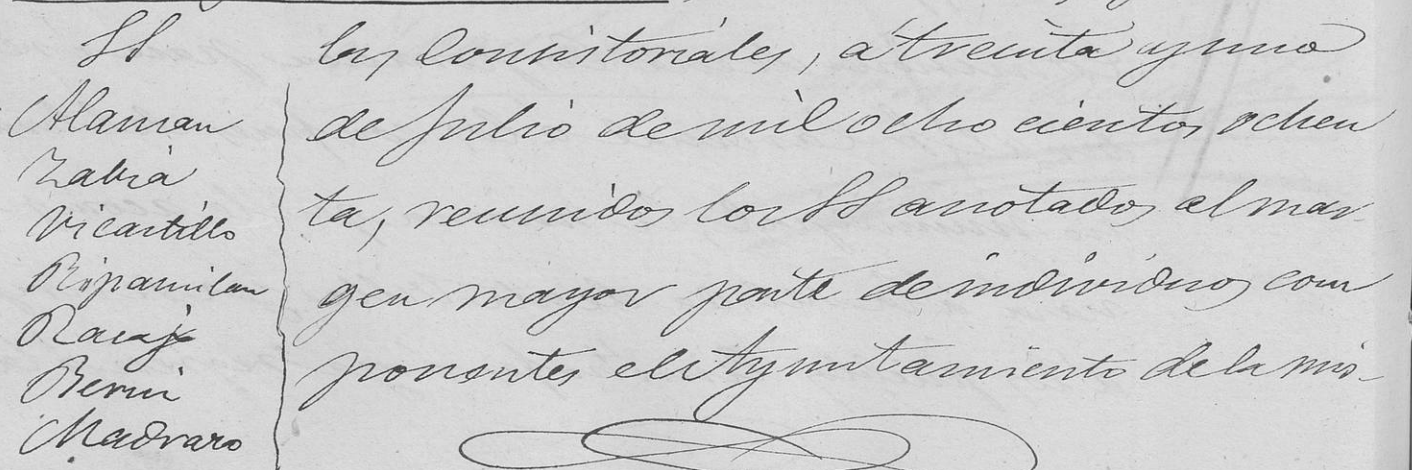 SS
Alaman
Zabia
Vicastillo
Ripamilan
Racaj
Berni
Madraro
les Consistoriales, á treinta y uno
de Julio de mil ocho cientos ochen
ta, reunidos los SS anotados al mar
gen mayor parte de individuos com
ponentes el Ayuntamiento de la mis-